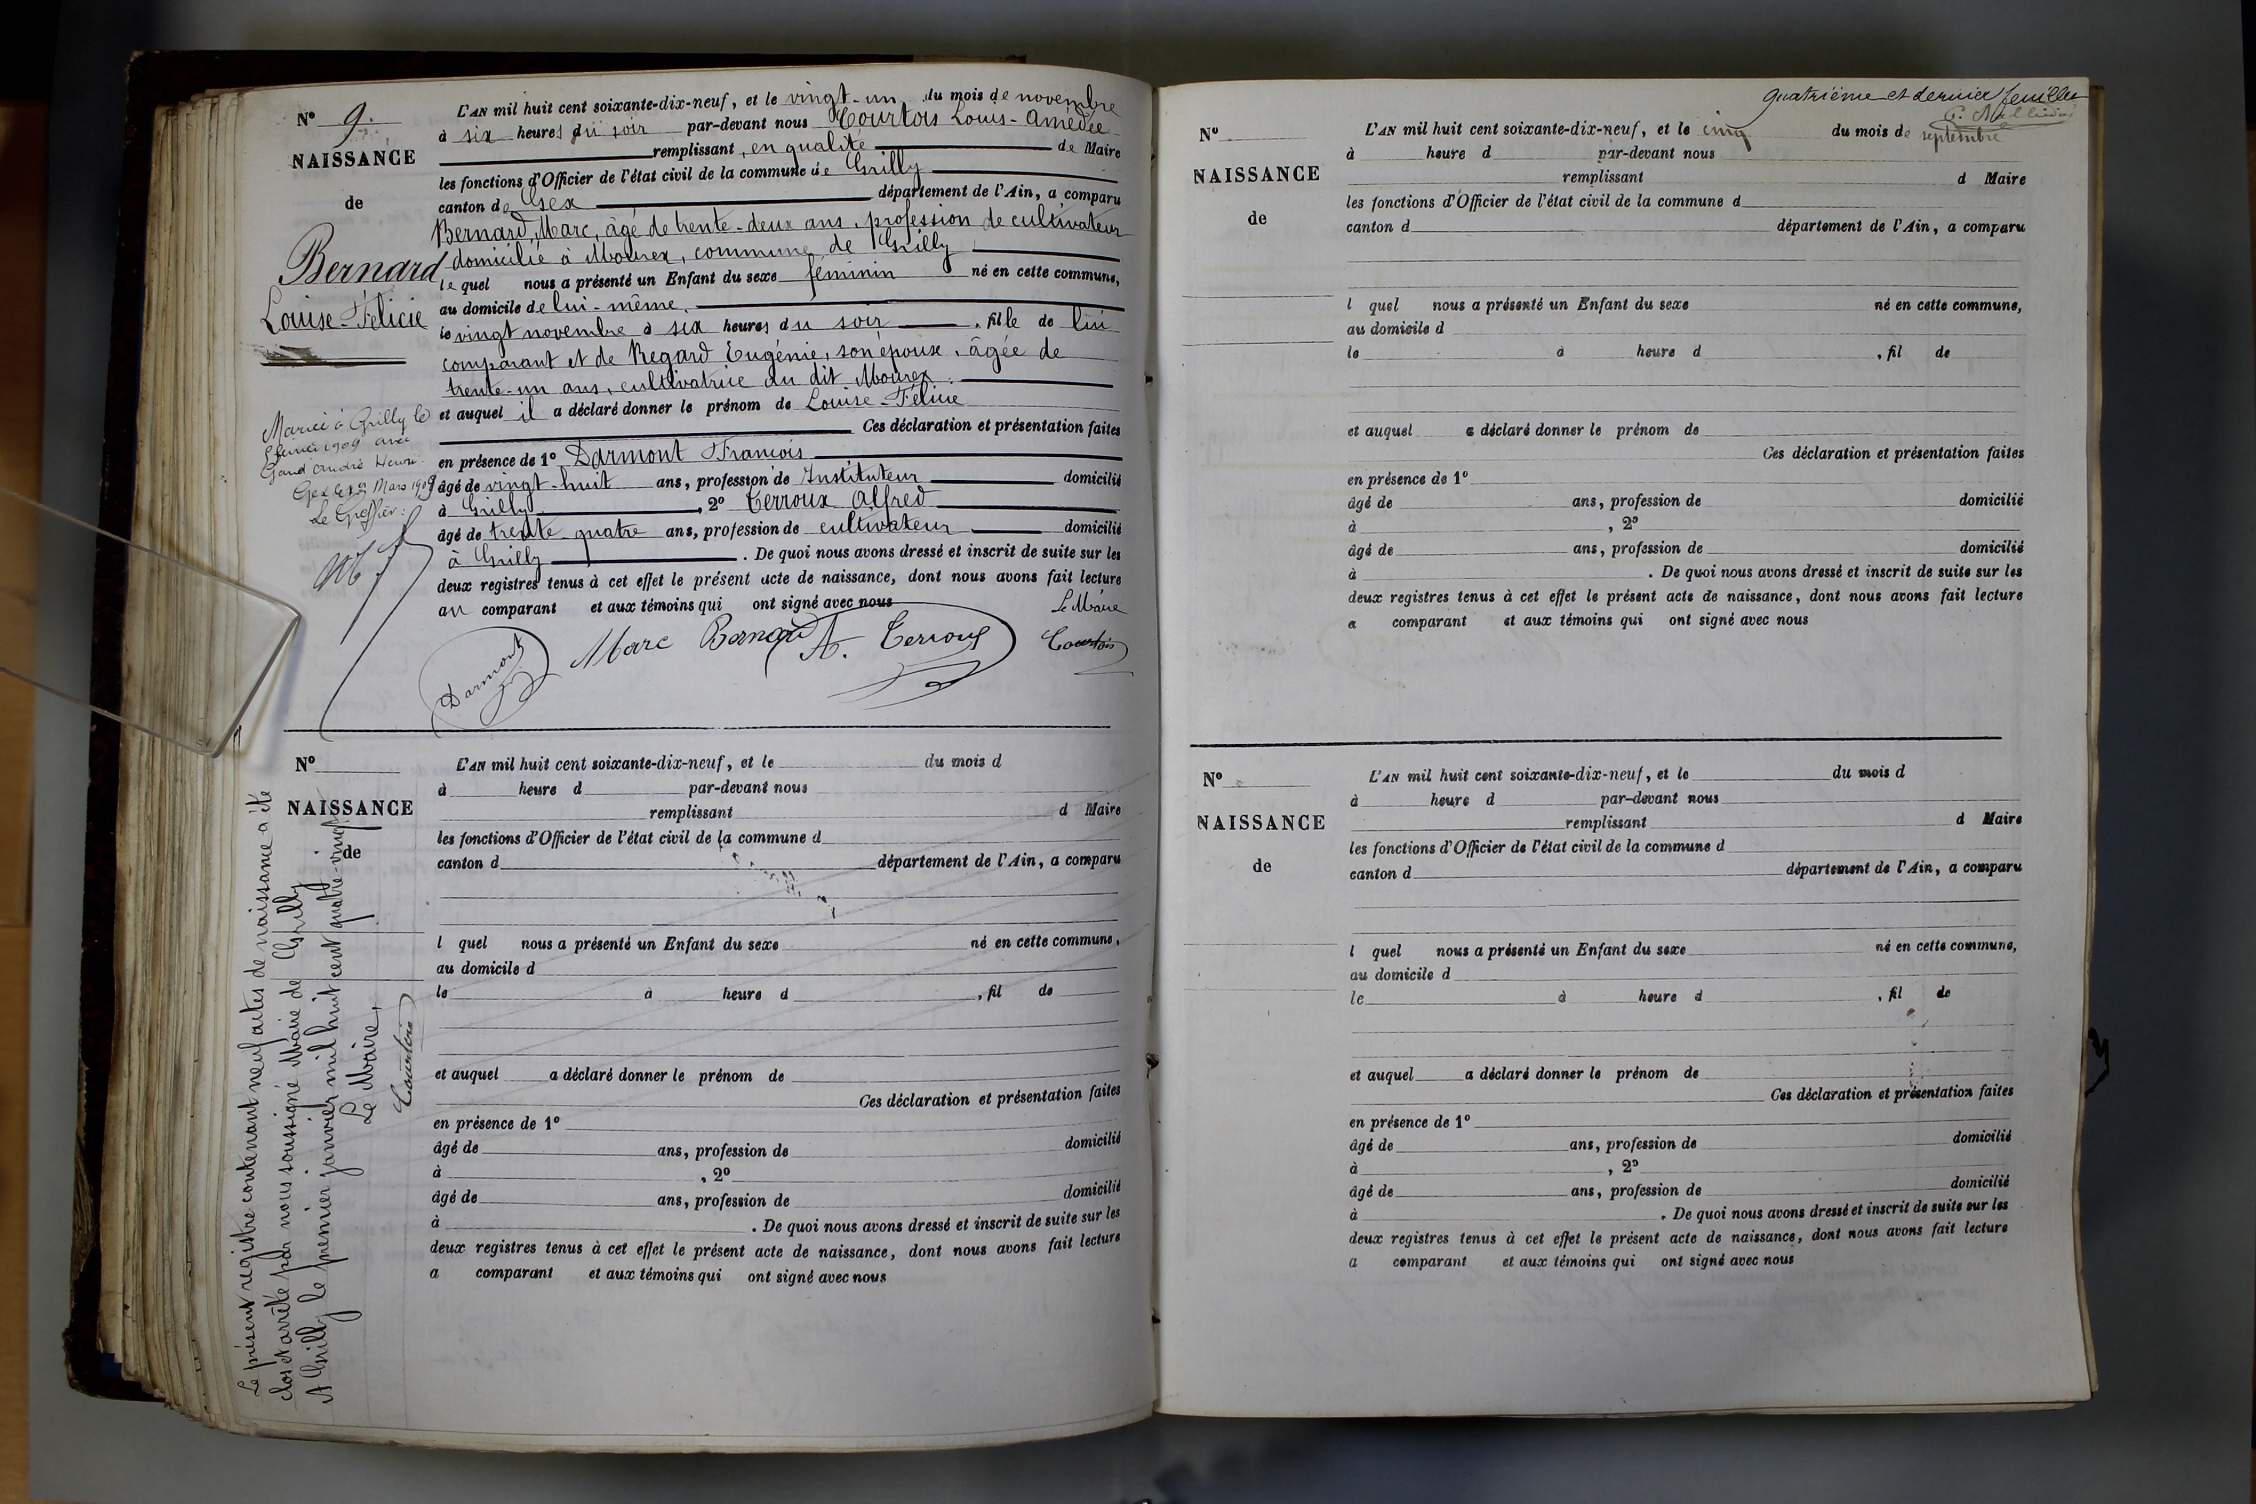 N° 9.
NAISSANCE
de
Bernard
Louise-Félicie
L'AN mil huit cent soixante-dix-neuf, et le vingt-un du mois de novembre
à six heures du soir par-devant nous Courtois Louis-Amédée
remplissant, en qualité de Maire
les fonctions d'Officier de l'état civil de la commune de Grilly
canton de Gex département de l'Ain, a comparu
Bernard, Marc, âgé de trente-deux ans, profession de cultivateur
domicilié à Mourex, commune de Grilly
lequel nous a présenté un Enfant du sexe féminin né en cette commune,
au domicile de lui-même,
le vingt novembre à six heures du soir, fille de lui
comparant et de Regard Eugénie, son épouse, âgée de
trente-un ans, cultivatrice au dit Mourex.
et auquel il a déclaré donner le prénom de Louise-Félicie
Ces déclaration et présentation faites
en présence de 1° Darmont François
âgé de vingt-huit ans, profession de Instituteur domicilié
à Grilly, 2° Terroux Alfred
âgé de trente quatre ans, profession de cultivateur domicilié
à Grilly. De quoi nous avons dressé et inscrit de suite sur les
deux registres tenus à cet effet le présent acte de naissance, dont nous avons fait lecture
au comparant et aux témoins qui ont signé avec nous
Le Maire
Darmont Marc Bernard A. Terroux Courtois
Marié à Grilly le
février 1909 avec
André Henri
Gex le Mars 1909
Le Greffier:
N°
NAISSANCE
de
L'AN mil huit cent soixante-dix-neuf, et le du mois d
à heure d par-devant nous
remplissant d Maire
les fonctions d'Officier de l'état civil de la commune d
canton d département de l'Ain, a comparu
l quel nous a présenté un Enfant du sexe né en cette commune,
au domicile d
le à heure d , fil de
et auquel a déclaré donner le prénom de
Ces déclaration et présentation faites
en présence de 1°
âgé de ans, profession de domicilié
à , 2°
âgé de ans, profession de domicilié
à . De quoi nous avons dressé et inscrit de suite sur les
deux registres tenus à cet effet le présent acte de naissance, dont nous avons fait lecture
a comparant et aux témoins qui ont signé avec nous
Le présent registre contenant neuf actes de naissance a été
clos et arrêté par nous soussigné Maire de Grilly
A Grilly le premier janvier mil huit cent quatre-vingt
Le Maire,
Courtois
quatrième et dernier feuillet
N°
NAISSANCE
de
L'AN mil huit cent soixante-dix-neuf, et le cinq du mois de septembre
à heure d par-devant nous
remplissant d Maire
les fonctions d'Officier de l'état civil de la commune d
canton d département de l'Ain, a comparu
l quel nous a présenté un Enfant du sexe né en cette commune,
au domicile d
le à heure d , fil de
et auquel a déclaré donner le prénom de
Ces déclaration et présentation faites
en présence de 1°
âgé de ans, profession de domicilié
à , 2°
âgé de ans, profession de domicilié
à . De quoi nous avons dressé et inscrit de suite sur les
deux registres tenus à cet effet le présent acte de naissance, dont nous avons fait lecture
a comparant et aux témoins qui ont signé avec nous
N°
NAISSANCE
de
L'AN mil huit cent soixante-dix-neuf, et le du mois d
à heure d par-devant nous
remplissant d Maire
les fonctions d'Officier de l'état civil de la commune d
canton d département de l'Ain, a comparu
l quel nous a présenté un Enfant du sexe né en cette commune,
au domicile d
le à heure d , fil de
et auquel a déclaré donner le prénom de
Ces déclaration et présentation faites
en présence de 1°
âgé de ans, profession de domicilié
à , 2°
âgé de ans, profession de domicilié
à . De quoi nous avons dressé et inscrit de suite sur les
deux registres tenus à cet effet le présent acte de naissance, dont nous avons fait lecture
a comparant et aux témoins qui ont signé avec nous